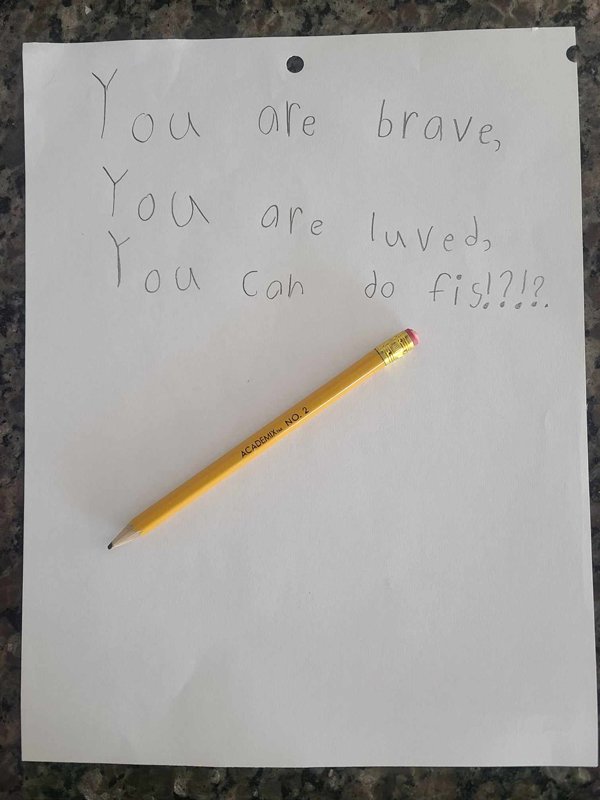 You are brave,
You are luved,
You can do fis!?!?
ACADEMIX™ NO. 2